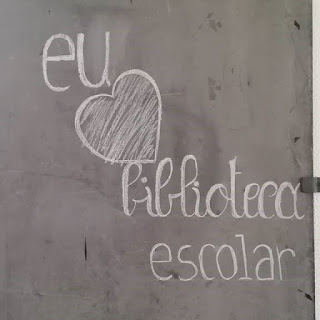 eu
biblioteca
escolar